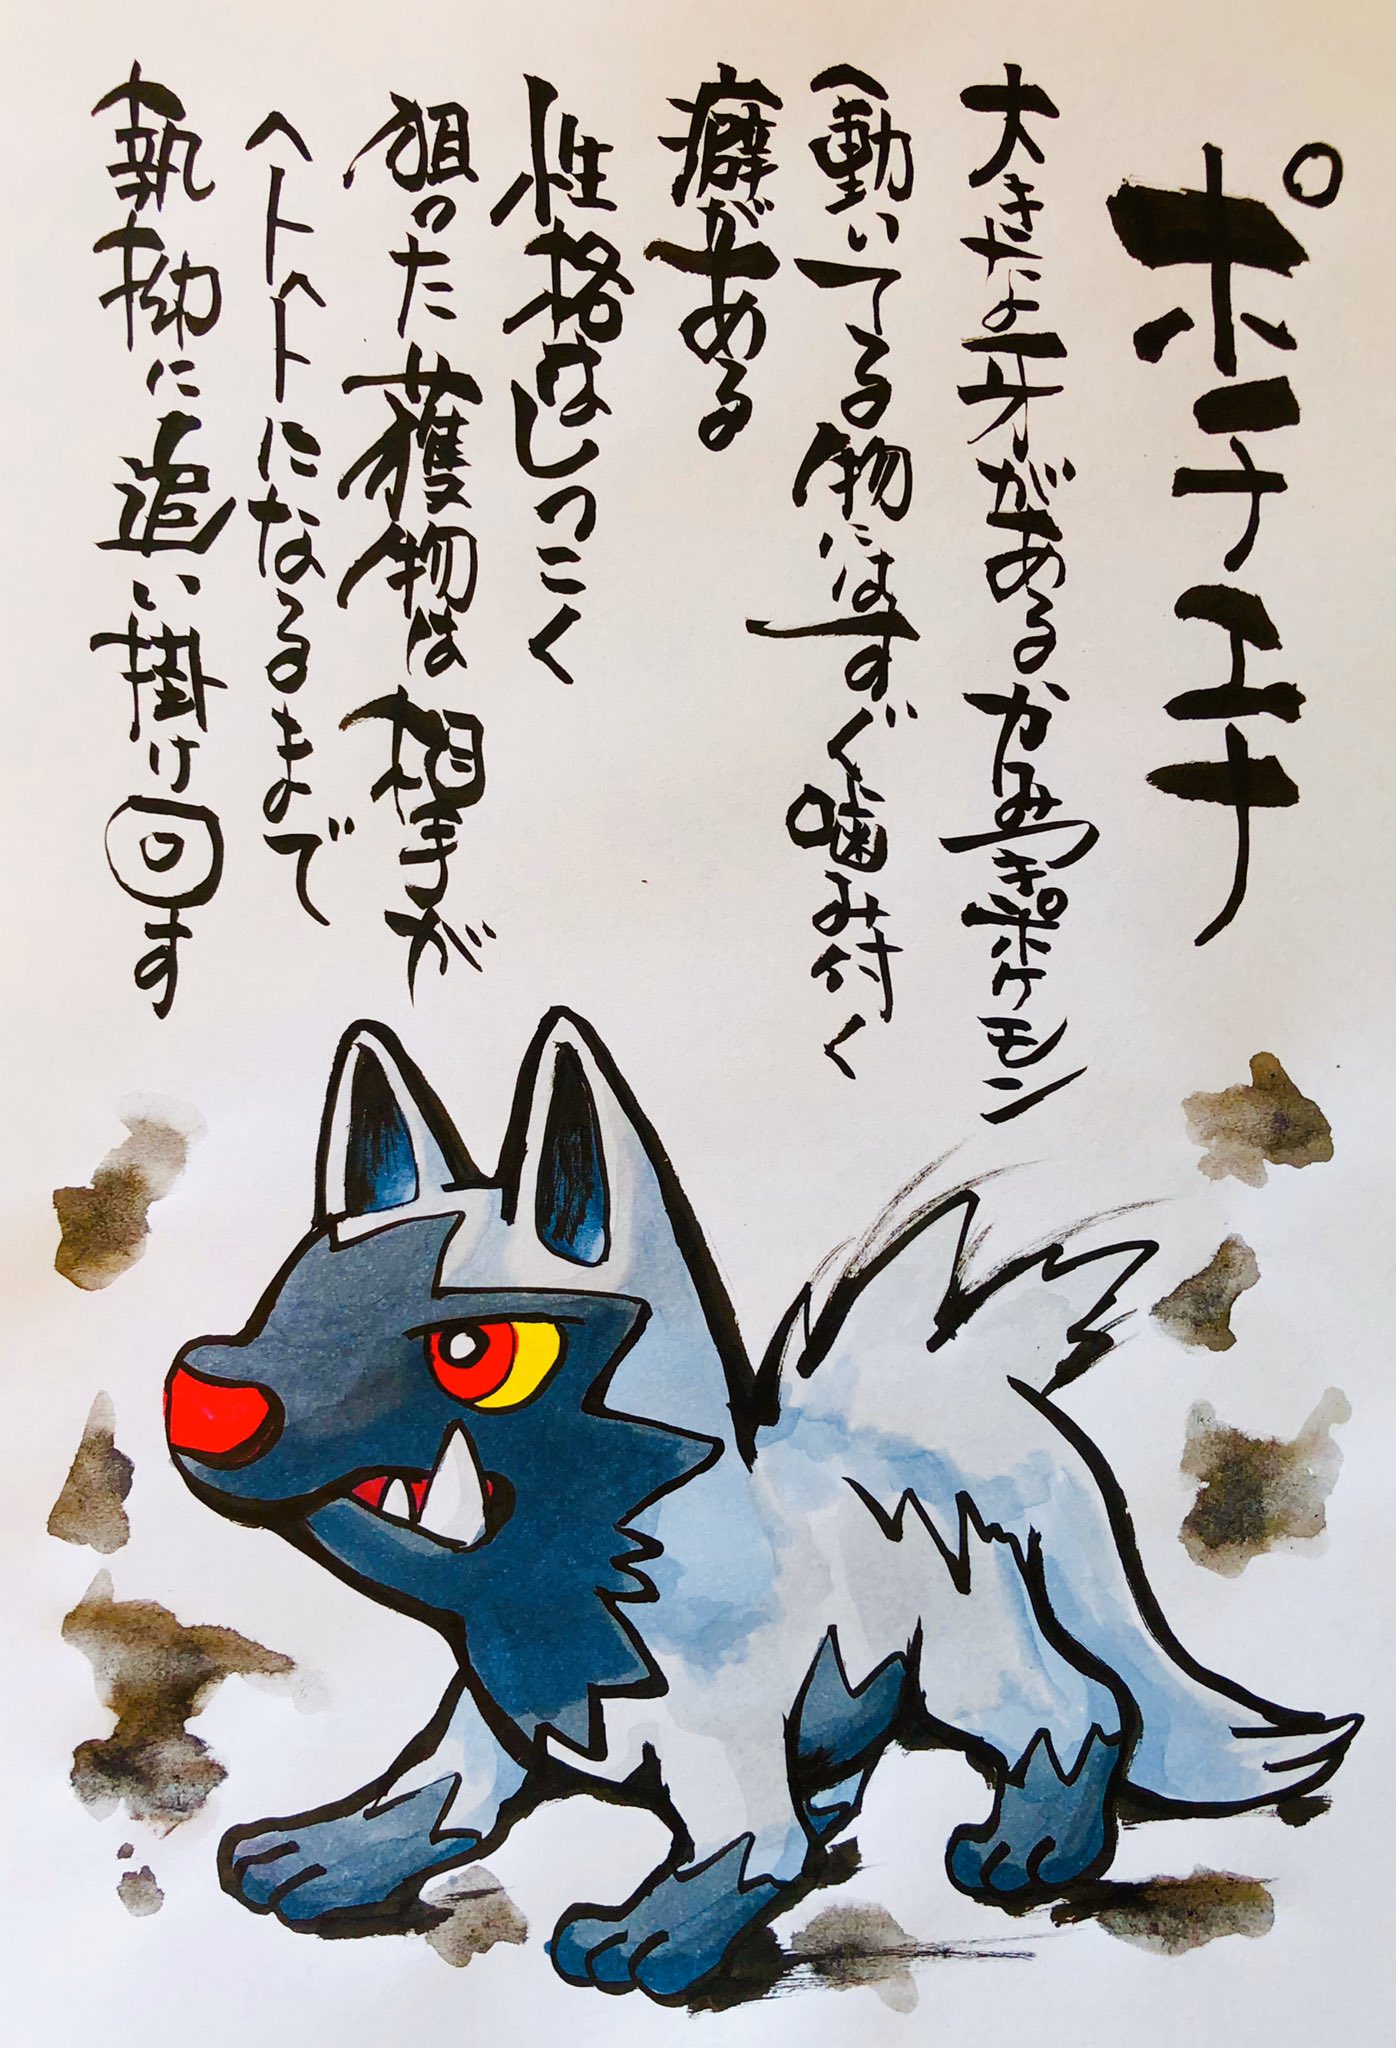 ポチエナ
大きな牙があるかみつきポケモン
動いてる物にはすぐ噛み付く
癖がある
性格はしつこく
狙った獲物は相手が
ヘトヘトになるまで
執拗に追い掛け回す